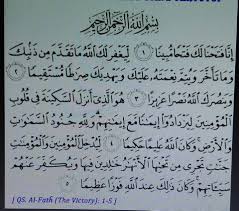 بِسْمِ اللَّهِ الرَّحْمَٰنِ الرَّحِيمِ
إِنَّا فَتَحْنَا لَكَ فَتْحًا مُّبِينًا ١ لِّيَغْفِرَ لَكَ اللَّهُ مَا تَقَدَّمَ مِن ذَنۢبِكَ
وَمَا تَأَخَّرَ وَيُتِمَّ نِعْمَتَهُۥ عَلَيْكَ وَيَهْدِيَكَ صِرَٰطًا مُّسْتَقِيمًا ٢
وَيَنصُرَكَ اللَّهُ نَصْرًا عَزِيزًا ٣ هُوَ الَّذِىٓ أَنزَلَ السَّكِينَةَ فِى قُلُوبِ
الْمُؤْمِنِينَ لِيَزْدَادُوٓا۟ إِيمَٰنًا مَّعَ إِيمَٰنِهِمْ وَلِلَّهِ جُنُودُ السَّمَٰوَٰتِ
وَالْأَرْضِ وَكَانَ اللَّهُ عَلِيمًا حَكِيمًا ٤ لِّيُدْخِلَ الْمُؤْمِنِينَ وَالْمُؤْمِنَٰتِ
جَنَّٰتٍ تَجْرِى مِن تَحْتِهَا الْأَنْهَٰرُ خَٰلِدِينَ فِيهَا وَيُكَفِّرَ عَنْهُمْ
سَيِّـَٔاتِهِمْ وَكَانَ ذَٰلِكَ عِندَ اللَّهِ فَوْزًا عَظِيمًا ٥
[ QS. Al-Fath (The Victory): 1-5 ]